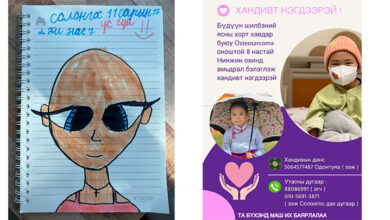 солонгос 11 сарын 17
нас 7
үс гүй !!
ХАНДИВТ НЭГДЭЭРЭЙ !
Бүдүүн шилбэний
ясны хорт хавдар
буюу Osteosarcoma
оноштой 8 настай
Нинжин охинд
амьдрал бэлэглэж
хандивт нэгдээрэй
Хандивын данс:
5064577487 Одонтуяа ( ээж )
Утасны дугаар :
88086991 ( эгч )
010-5691-3871
( ээж Солонгос дах дугаар )
ТА БҮХЭНД МАШ ИХ БАЯРЛАЛАА